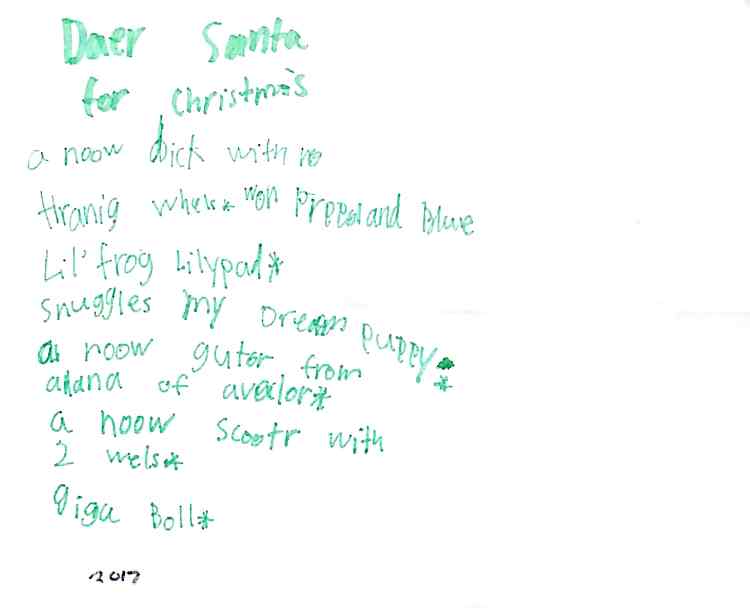 Daer Santa
for Christmas
a noow bick with no
tranig whels* won Prppel and Blue
Lil' frog Lilypad*
snuggles my Dream puppy*
a noow guter from
alana of avalor*
a noow scootr with
2 wels*
giga Boll*
2017